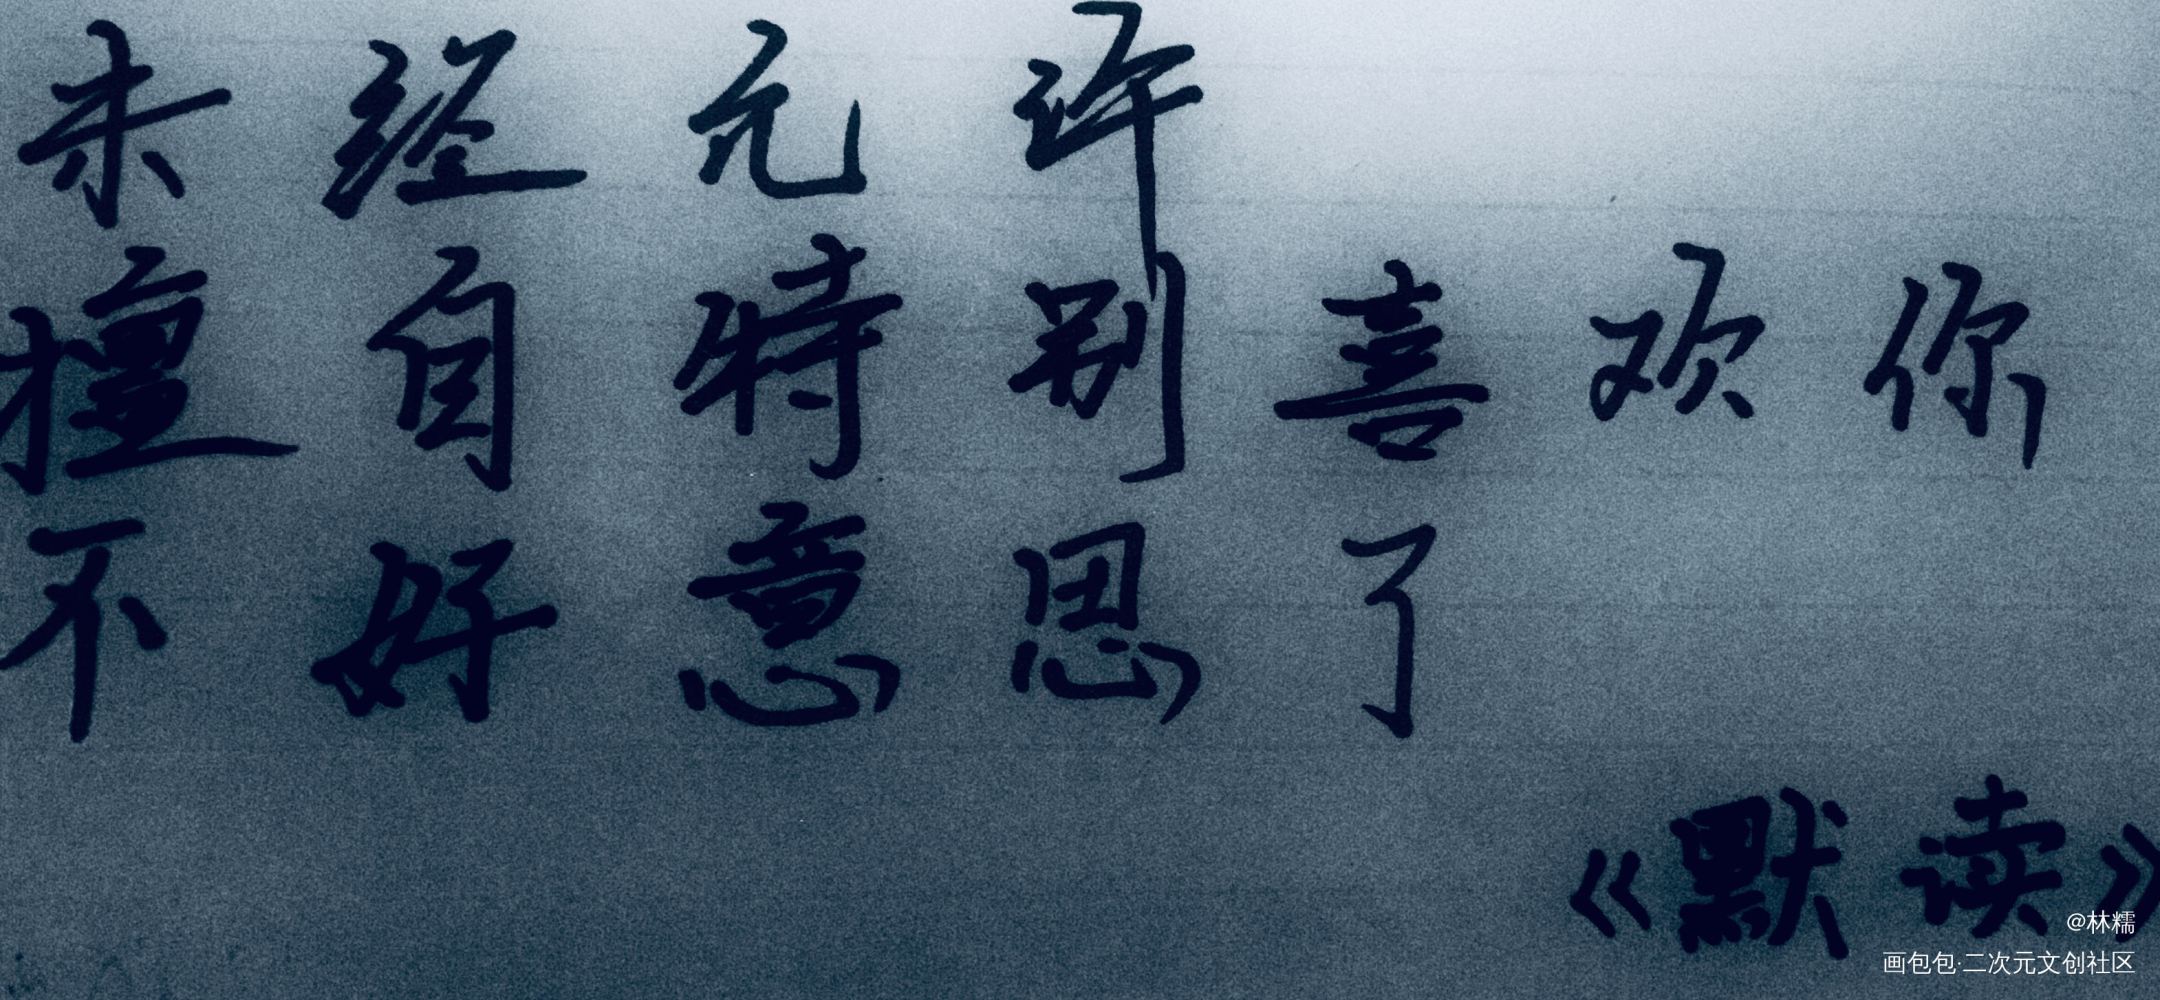 未经允许
擅自特别喜欢你
不好意思了
《默读》
@林糯
画包包·二次元文创社区